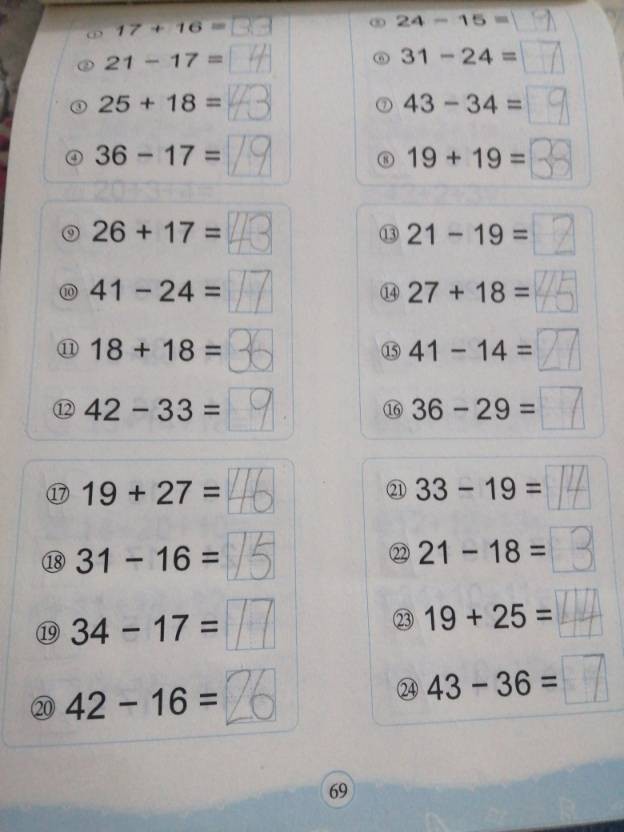 ① 17 + 16 = 33
② 21 - 17 = 4
③ 25 + 18 = 43
④ 36 - 17 = 19
⑤ 24 - 15 = 9
⑥ 31 - 24 = 7
⑦ 43 - 34 = 9
⑧ 19 + 19 = 38
⑨ 26 + 17 = 43
⑩ 41 - 24 = 17
⑪ 18 + 18 = 36
⑫ 42 - 33 = 9
⑬ 21 - 19 = 2
⑭ 27 + 18 = 45
⑮ 41 - 14 = 27
⑯ 36 - 29 = 7
⑰ 19 + 27 = 46
⑱ 31 - 16 = 15
⑲ 34 - 17 = 17
⑳ 42 - 16 = 26
㉑ 33 - 19 = 14
㉒ 21 - 18 = 3
㉓ 19 + 25 = 44
㉔ 43 - 36 = 7
69